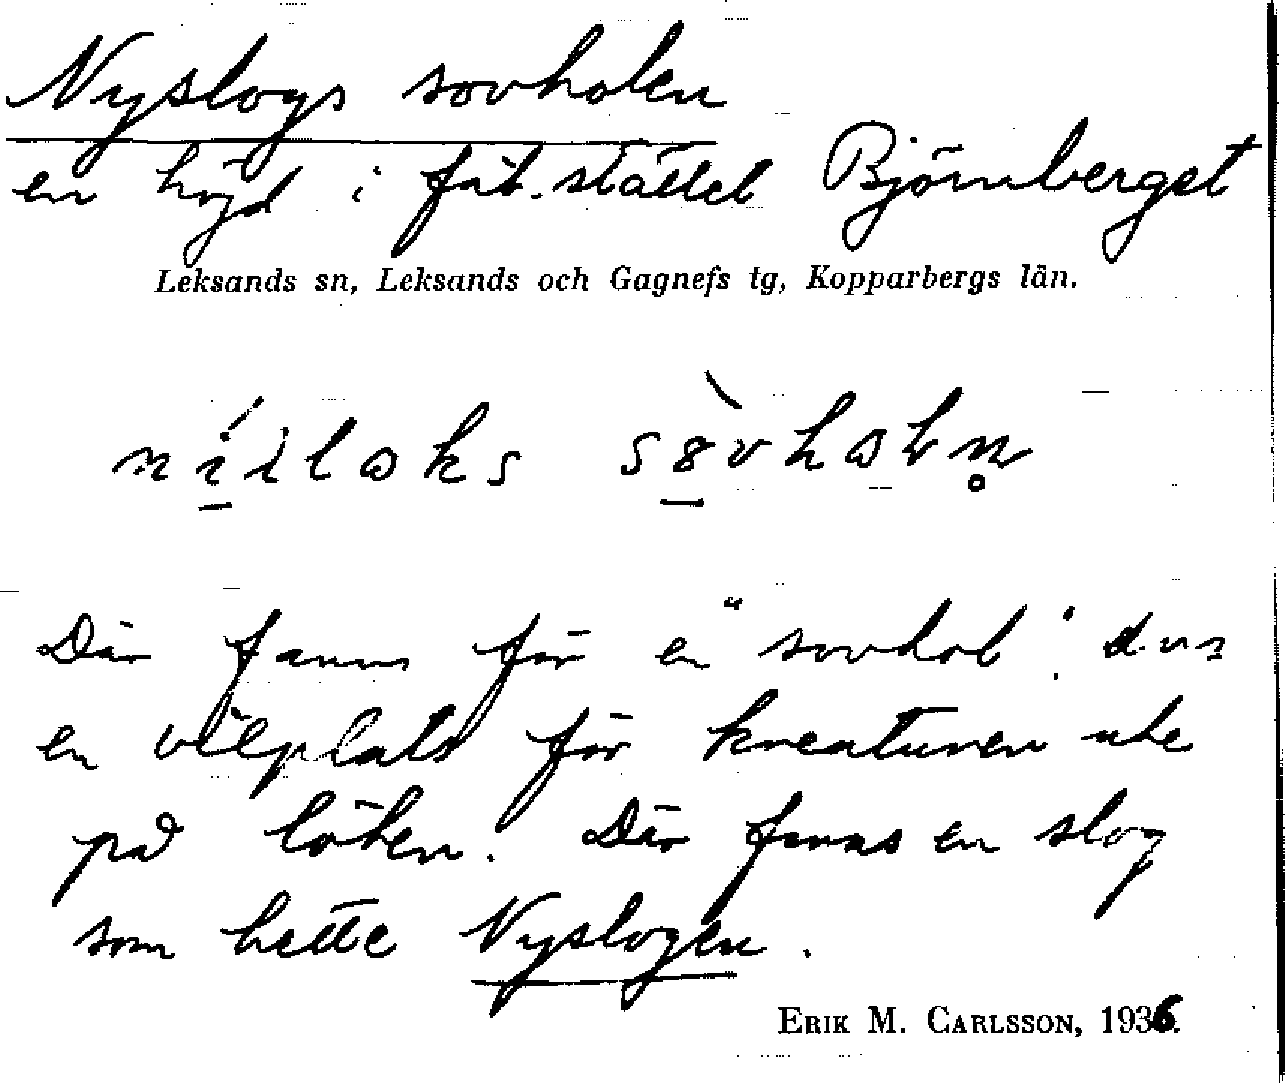 Nyslogs sovholen
en höjd i fäb.stället Björnberget
Leksands sn, Leksands och Gagnefs tg, Kopparbergs län.
Där fanns för en "sovhol". d.v.s
en vilplats för kreaturen ute
på löten. Där fanns en slog
som hette Nyslogen.
ERIK M. CARLSSON, 1936.